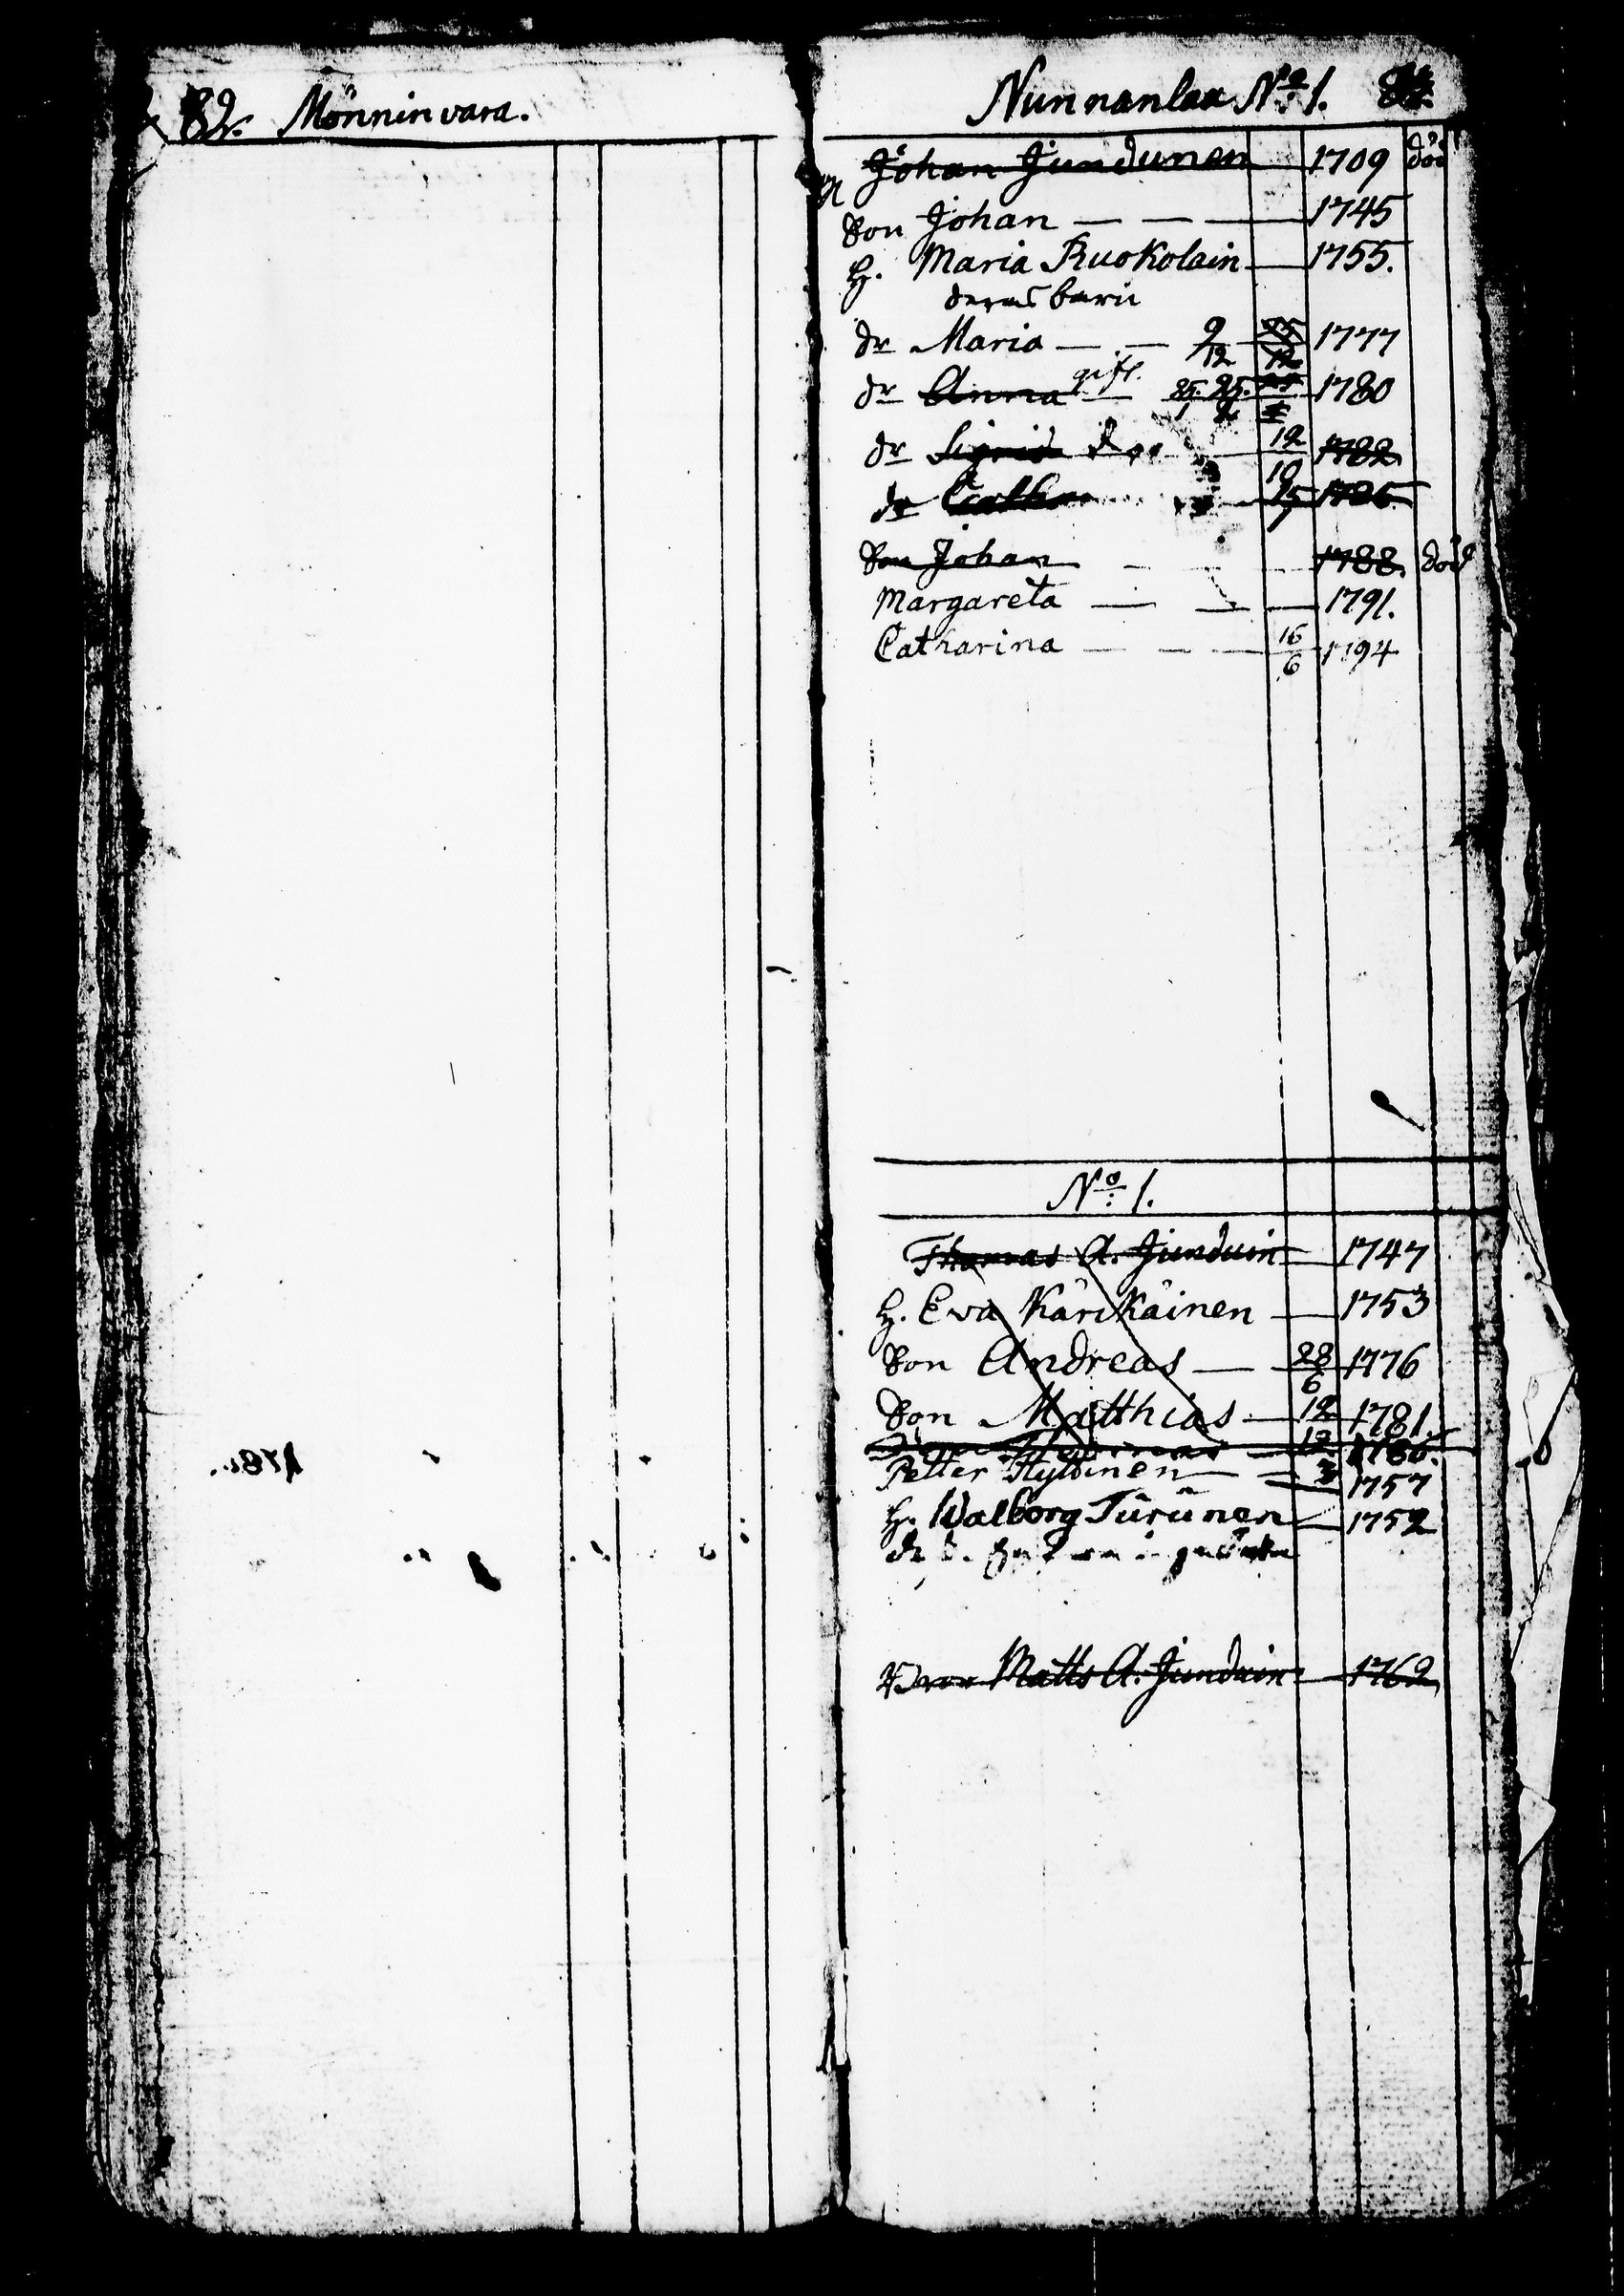 82. Mönninvara.
Nunnanlax No 1.
Johan Jundunen 1709 död
Son Johan — — — 1745
H. Maria Ruokolain — 1755.
deras barn
dr Maria — — 9/12 25/12 1777
dr Anna gift. — 25. 25. 1780
dr Sigrid död 12/10 1782
dr Cathar 15 1786
Son Johan — — 1788. död
Margareta — — — 1791.
Catharina — — — 16/6 1794
No 1.
Thomas A. Junduin — 1747
H. Eva Kärikäinen — 1753
Son Andreas — 28/6 1776
Son Matthias — 12 1781.
Son Thomas 12/3 1786.
Petter Hyttinen — 1757
H. Walborg Turunen — 1752
Matts A. Junduin — 1762
1781.